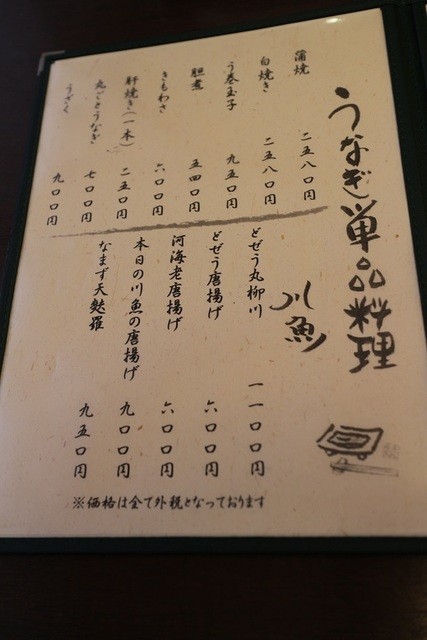 うなぎ単品料理
蒲焼 二五八〇円
白焼き 二五八〇円
う巻玉子 九五〇円
胆煮 五四〇円
きもわさ 六〇〇円
肝焼き(一本) 二五〇円
丸ごとうなぎ 七〇〇円
うざく 九〇〇円
川魚
どぜう丸柳川 一一〇〇円
どぜう唐揚げ 六〇〇円
河海老唐揚げ 六〇〇円
本日の川魚の唐揚げ 九〇〇円
なまず天麩羅 九五〇円
※価格は全て外税となっております